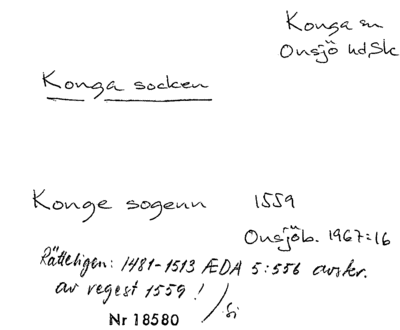 Konga sn
Onsjö hd, Sk
Konga socken
Konge sogenn 1559
Onsjöb. 1967:16
Rätteligen: 1481-1513 ÆDA 5:556 avskr.
av regest 1559!
Nr 18580